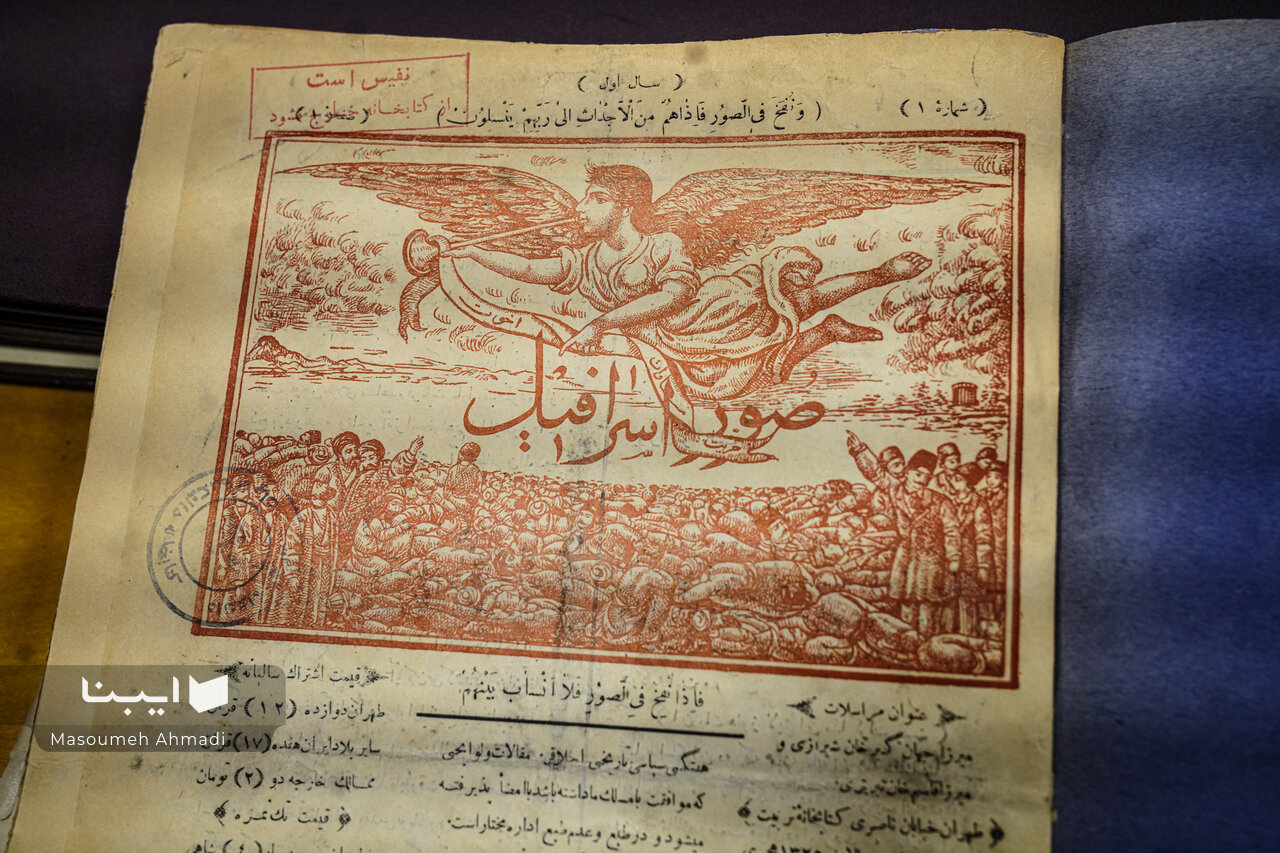 ( سال اول )
( شمارهٔ ۱ )
( وَنُفِخَ فِی الصّورِ فَاِذاهُمْ مِنَ الْاَجْداثِ اِلیٰ رَبِّهِمْ یَنْسِلوُنْ )
نفیس است
از کتابخانه خارج نشود
صور اسرافیل
حریت
اخوت
فَاِذا نُفِخَ فِی الصّوُرِ فَلا اَنْسابَ بَیْنَهُمْ
عنوان مراسلات
میرزا جهان گیر خان شیرازی و
میرزا قاسم خان تبریزی
طهران خیابان ناصری کتابخانهٔ تربیت
هفتگی سیاسی تاریخی اخلاقی . مقالات و لوایحی
که موافقت با مسلک ما داشته باشد با امضأ پذیرفته
میشود و در طبع و عدم طبع اداره مختار است
قیمت اشتراك سالیانه
طهران دوازده (۱۲) قران
سایر بلاد ایران هفده (۱۷) قران
ممالك خارجه دو (۲) تومان
قیمت تك نمره
ایبنا
Masoumeh Ahmadi